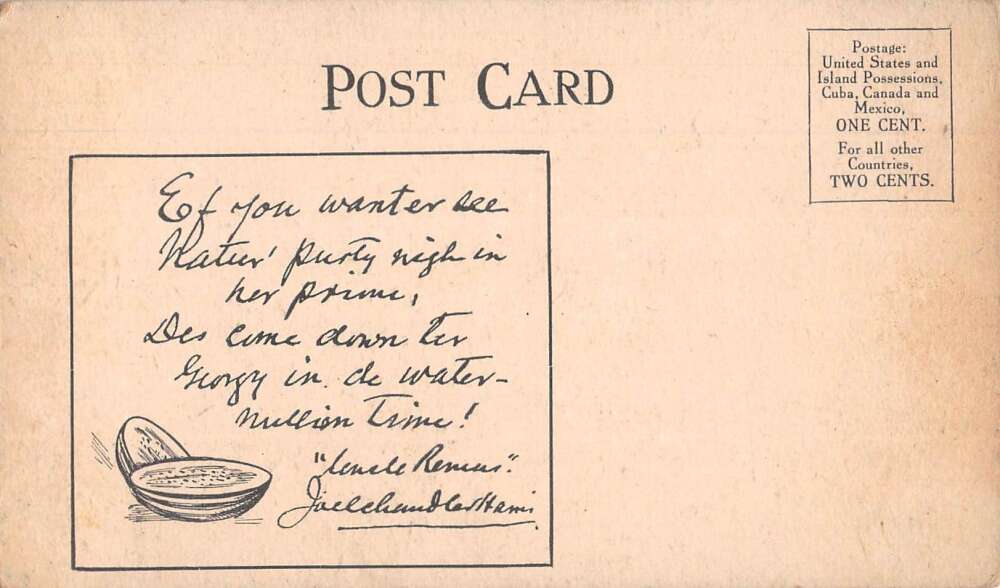 POST CARD
Postage:
United States and
Island Possessions,
Cuba, Canada and
Mexico,
ONE CENT.
For all other
Countries,
TWO CENTS.
Ef you wanter see
Natur' purty nigh in
her prime,
Des come down ter
Georgy in de water-
million time!
"Uncle Remus".
Joel Chandler Harris